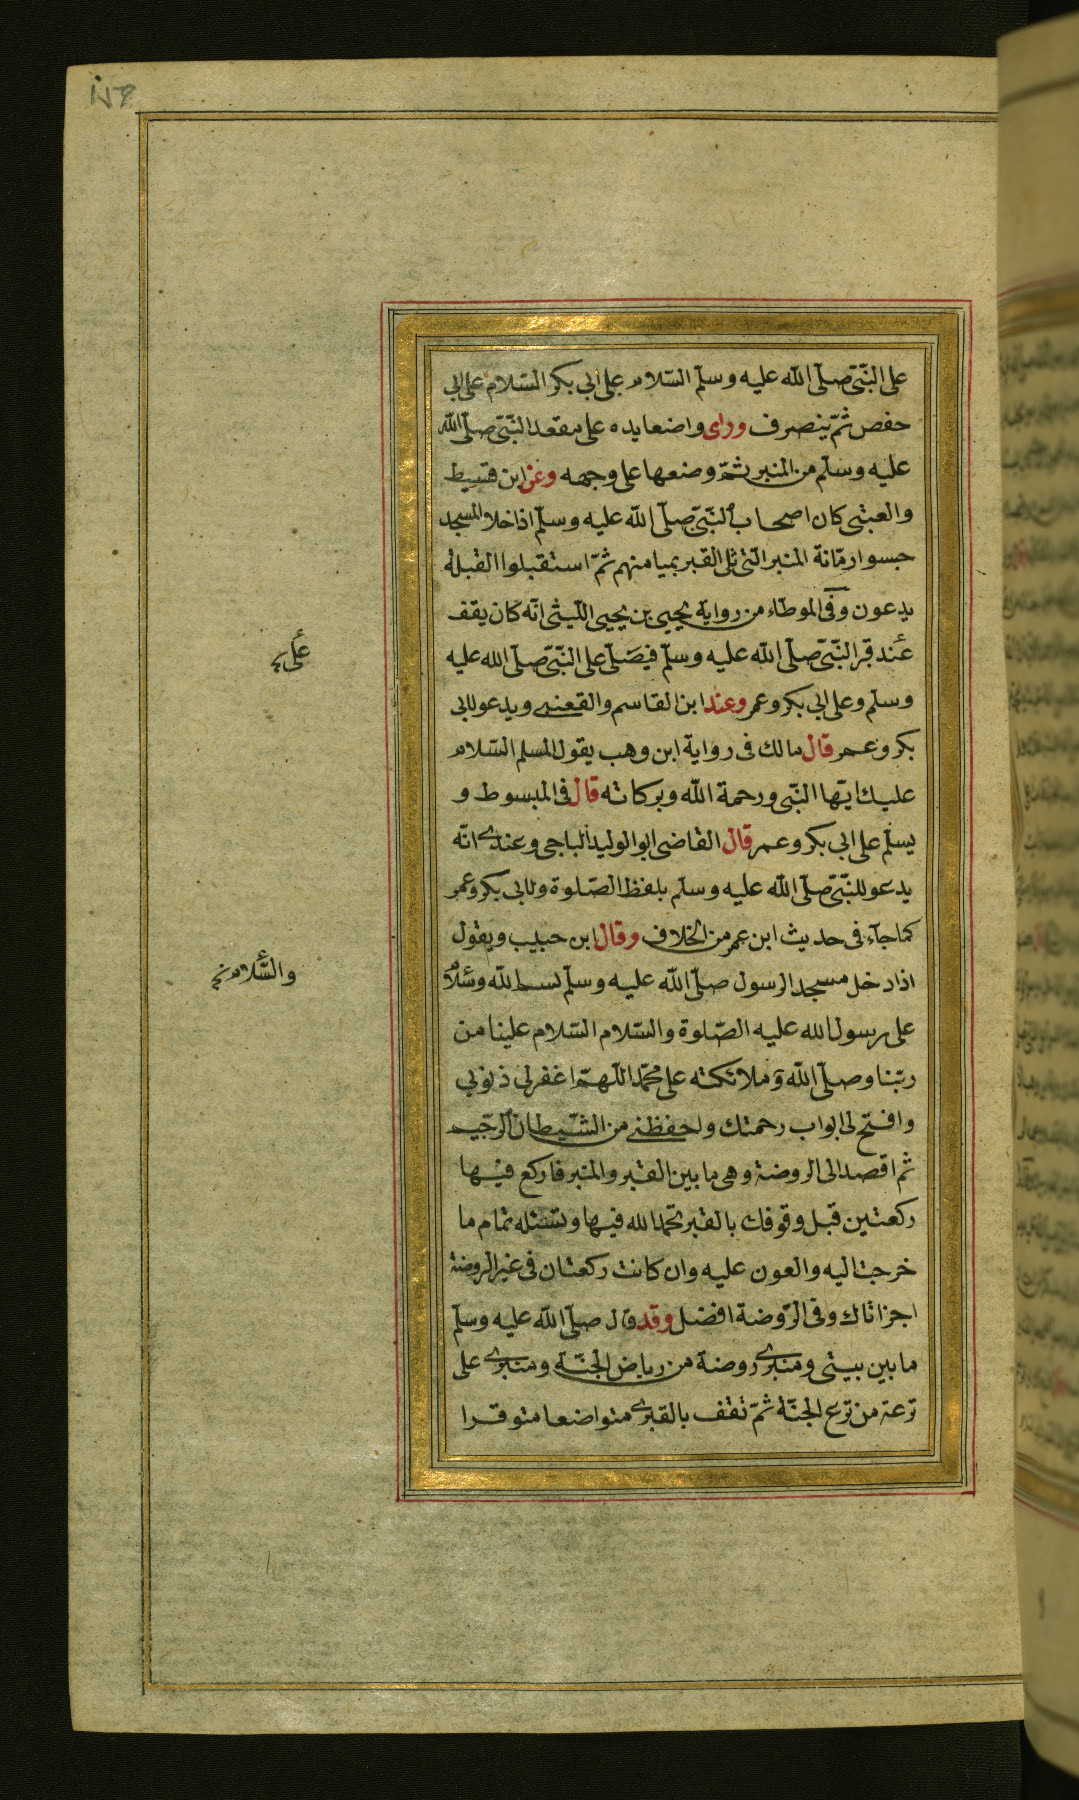 على النّبّى صلّى اللّه عليه وسلّم السّلام على ابى بكر السّلام على ابى
حفص ثمّ ينصرف وراى واضعا يده على مقعد النّبّى صلّى اللّه
عليه وسلّم من المنبر ثمّ وضعها على وجهه وعن ابن قسيط
والعتبى كان اصحاب النّبّى صلّى اللّه عليه وسلّم اذا خلا المسجد
حبسوا رمّانة المنبر الّتى تلى القبر بميامنهم ثمّ استقبلوا القبلة
يدعون وفى الموطاء من رواية يحيى بن يحيى اللّيثى انّه كان يقف
عند قبر النّبّى صلّى اللّه عليه وسلّم فيصلّى على النّبّى صلّى الله عليه
وسلم وعلى ابى بكر وعمر وعند ابن القاسم والقعنبى ويدعو لابى
بكر وعمر قال مالك فى رواية ابن وهب يقول المسلم السّلام
عليك ايّها النّبّى ورحمة اللّه وبركاته قال فى المبسوط و
يسلّم على ابى بكر وعمر قال القاضى ابو الوليد الباجى وعندى انّه
يدعو للنّبّى صلّى اللّه عليه وسلم بلفظ الصّلوة ولابى بكر وعمر
كما جآء فى حديث ابن عمر من الخلاف وقال ابن حبيب ويقول
اذا دخل مسجد الرسول صلّى اللّه عليه وسلّم بسم اللّه وسلام
على رسول الله عليه الصّلوة والسّلام السّلام علينا من
ربّنا وصلّى اللّه وملائكته على محمّد اللّهمّ اغفر لى ذنوبى
وافتح لى ابواب رحمتك واحفظنى من الشّيطان الرّجيم
ثم اقصد الى الروضة وهى ما بين القبر والمنبر فاركع فيها
ركعتين قبل وقوفك بالقبر تحمد الله فيها وتسئله تمام ما
خرجت اليه والعون عليه وان كانت ركعتان فى غير الروضة
اجزاتاك وفى الرّوضة افضل وقد قال صلّى اللّه عليه وسلّم
ما بين بيتى ومنبرى روضة من رياض الجنّة ومنبرى على
ترعة من ترع الجنّة ثمّ تقف بالقبر متواضعا متوقرا
على
والسّلام